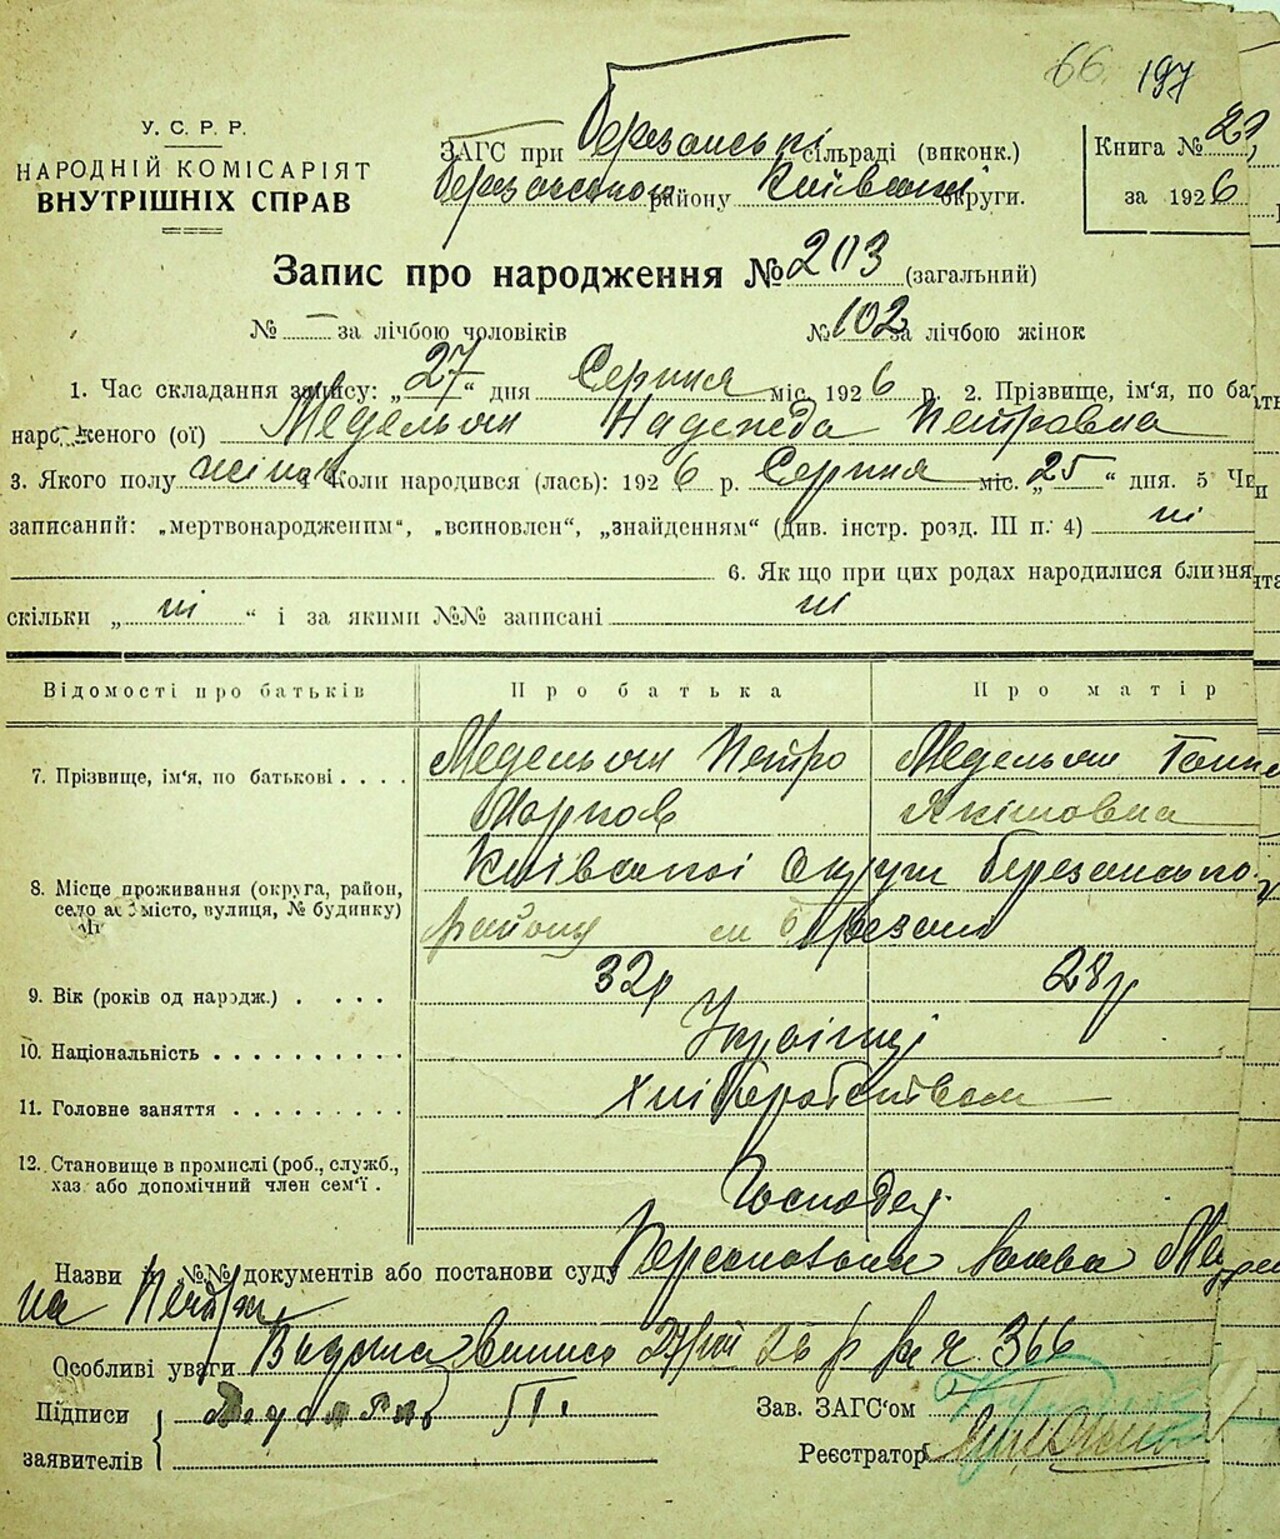 66. 197
У. С. Р. Р.
НАРОДНІЙ КОМІСАРІЯТ
ВНУТРІШНІХ СПРАВ
ЗАГС при Березанські сільраді (виконк.)
Березанського району Київської округи.
Книга № 23
за 1926
Запис про народження № 203 (загальний)
№ — за лічбою чоловіків № 102 за лічбою жінок
1. Час складання запису: „27“ дня Серпня міс. 1926 р. 2. Прізвище, ім'я, по ба
народженого (ої) Медельян Надежда Петровна
3. Якого полу жіноч 4 Коли народився (лась): 1926 р. Серпня міс. „25“ дня. 5 Чи
записаний: „мертвонародженим“, „всиновлен“, „знайденням“ (див. інстр. розд. III п. 4) ні
6. Як що при цих родах народилися близня
скільки „ні“ і за якими №№ записані ні
Відомості про батьків Про батька Про матір
7. Прізвище, ім'я, по батькові . . . . Медельян Петро Медельян Ганна
Марков Якимовна
8. Місце проживання (округа, район, село або місто, вулиця, № будинку) Київської Округи Березансько
району м Березані
9. Вік (років од народж.) . . . . 32р 28р
10. Національність . . . . . . . . . . Українці
11. Головне заняття . . . . . . . . . Хліборобством
12. Становище в промислі (роб., служб., хаз. або допомічний член сем'ї . Господар
Назви і №№ документів або постанови суду Персональна заява
на
Особливі уваги Видана випись 27/VIII 26 р за ч. 366
Підписи заявителів П.
Зав. ЗАГС'ом
Реєстратор